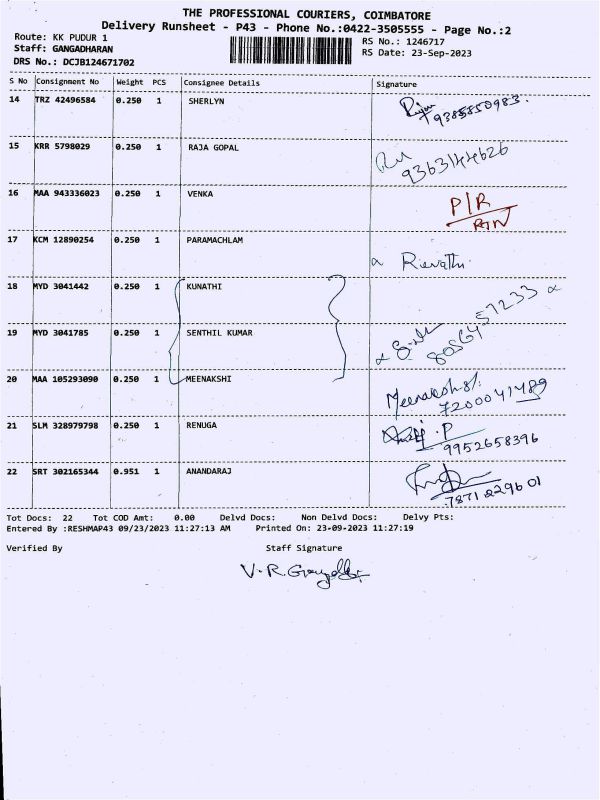 THE PROFESSIONAL COURIERS, COIMBATORE
Delivery Runsheet - P43 - Phone No.:0422-3505555 - Page No.:2
Route: KK PUDUR 1
RS No.: 1246717
Staff: GANGADHARAN
RS Date: 23-Sep-2023
DRS No.: DCJB124671702
S No Consignment No Weight PCS Consignee Details Signature
14 TRZ 42496584 0.250 1 SHERLYN
9385850983.
15 KRR 5798029 0.250 1 RAJA GOPAL
9363144626
16 MAA 943336023 0.250 1 VENKA P/R
17 KCM 12890254 0.250 1 PARAMACHLAM
Revathi
18 MYD 3041442 0.250 1 KUNATHI
19 MYD 3041785 0.250 1 SENTHIL KUMAR
8056457233
20 MAA 105293090 0.250 1 MEENAKSHI
7200041489
21 SLM 328979798 0.250 1 RENUGA
9952658396
22 SRT 302165344 0.951 1 ANANDARAJ
7871229601
Tot Docs: 22 Tot COD Amt: 0.00 Delvd Docs: Non Delvd Docs: Delvy Pts:
Entered By :RESHMAP43 09/23/2023 11:27:13 AM Printed On: 23-09-2023 11:27:19
Verified By Staff Signature
V.R.